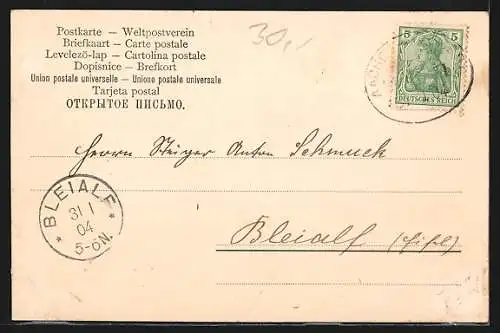 Postkarte — Weltpostverein
Briefkaart — Carte postale
Levelező-lap — Cartolina postale
Dopisnice — Brefkort
Union postale universelle — Unione postale universale
Tarjeta postal
ОТКРЫТОЕ ПИСЬМО.
30,-
5 5
DEUTSCHES REICH
Herrn Steiger Anton Schmuck
Bleialf (Eifel)
* BLEIALF *
31 1
04
5-6N.